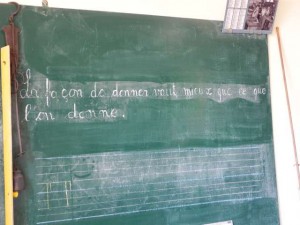 La façon de donner vaut mieux que ce que
l'on donne.